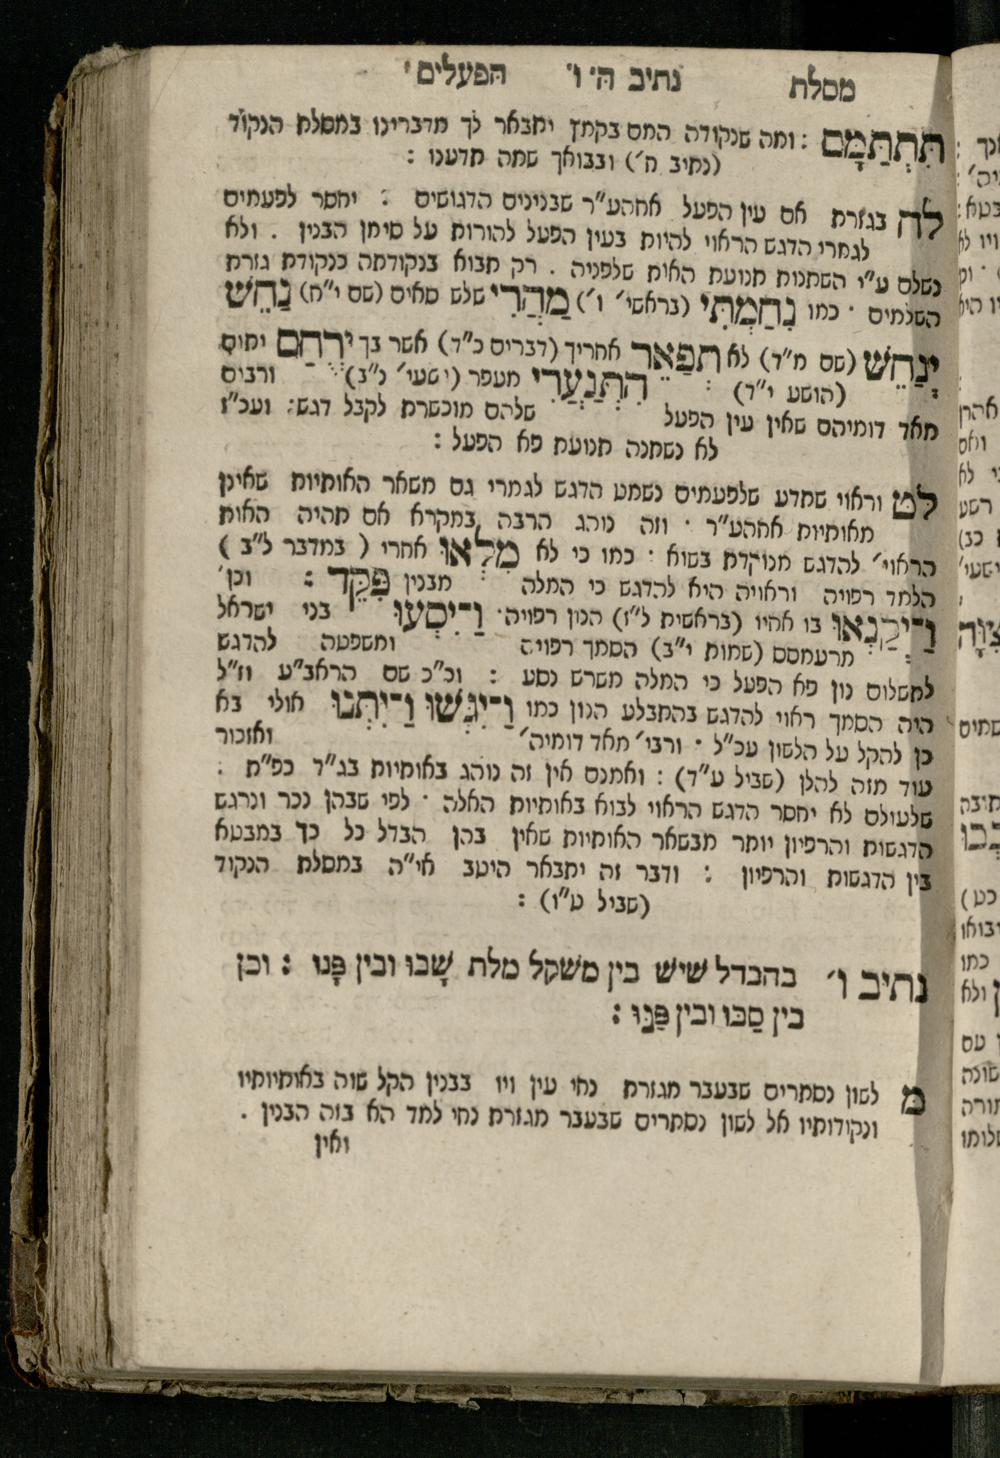 מסלת נתיב ה׳ ו׳ הפעלים׳
תִּתְתַּמָּם : ומה שנקודה המם בקמץ יתבאר לך מדברינו במסלת הנקוד
(נתיב ח׳) ובבואך שמה תדענו :
לח בגזרת אם עין הפעל אחהע״ר שבנינים הדגושים : יחסר לפעמים
לגמרי הדגש הראוי להיות בעין הפעל להורות על סימן הבנין . ולא
נשלם ע״י השתנות תנועת האות שלפניה . רק תבוא בנקודתה כנקודת גזרת
השלמים · כמו נִחַמְתִּי (בראשי׳ ו׳) מַהֲרִי שלש סאים (שם י״ח) נַחֵשׁ
יְנַחֵשׁ (שם מ״ד) לא תְפַאֵר אחריך (דברים כ״ד) אשר בך יְרֻחַם יתום
(הושע י״ד) הִתְנַעֲרִי מעפר (ישעי׳ נ״ב) ורבים
מאד דומיהם שאין עין הפעל שלהם מוכשרת לקבל דגש: ועכ״ז
לא נשתנה תנועת פא הפעל :
לט וראוי שתדע שלפעמים נשמט הדגש לגמרי גם משאר האותיות שאינן
מאותיות אחהע״ר · וזה נוהג הרבה במקרא אם תהיה האות
הראוי׳ להדגש מנוקדת בשוא · כמו כי לא מִלְאוּ אחרי ( במדבר ל״ב )
הלמד רפויה וראויה היא להדגש כי המלה מבנין פִּקֵּד : וכן׳
וַיְקַנְאוּ בו אחיו (בראשית ל״ז) הנון רפויה· וַיִּסְעוּ בני ישראל
מרעמסס (שמות י״ב) הסמך רפויה ומשפטה להדגש
לתשלום נון פא הפעל כי המלה משרש נסע : וכ״כ שם הראב״ע וז״ל
היה הסמך ראוי להדגש בהתבלע הנון כמו וַיִּגְּשׁוּ וַיִּתְּנוּ אולי בא
כן להקל על הלשון עכ״ל · ורבי׳ מאד דומיה׳ ואזכור
עוד מזה להלן (שביל ע״ד) : ואמנם אין זה נוהג באותיות בג״ד כפ״ת :
שלעולם לא יחסר הדגש הראוי לבוא באותיות האלה · לפי שבהן נכר ונרגש
הדגשות והרפיון יותר מבשאר האותיות שאין בהן הבדל כל כך במבטא
בין הדגשות והרפיון : ודבר זה יתבאר היטב אי״ה במסלת הנקוד
(שביל ע״ו) :
נתיב ו׳ בהבדל שיש בין משקל מלת שָׁבוּ ובין פָּנוּ : וכן
בין סַבּוּ ובין פַּנּוּ :
מ לשון נסתרים שבעבר מגזרת נחי עין ויו בבנין הקל שוה באותיותיו
ונקודותיו אל לשון נסתרים שבעבר מגזרת נחי למד הא בזה הבנין .
ואין